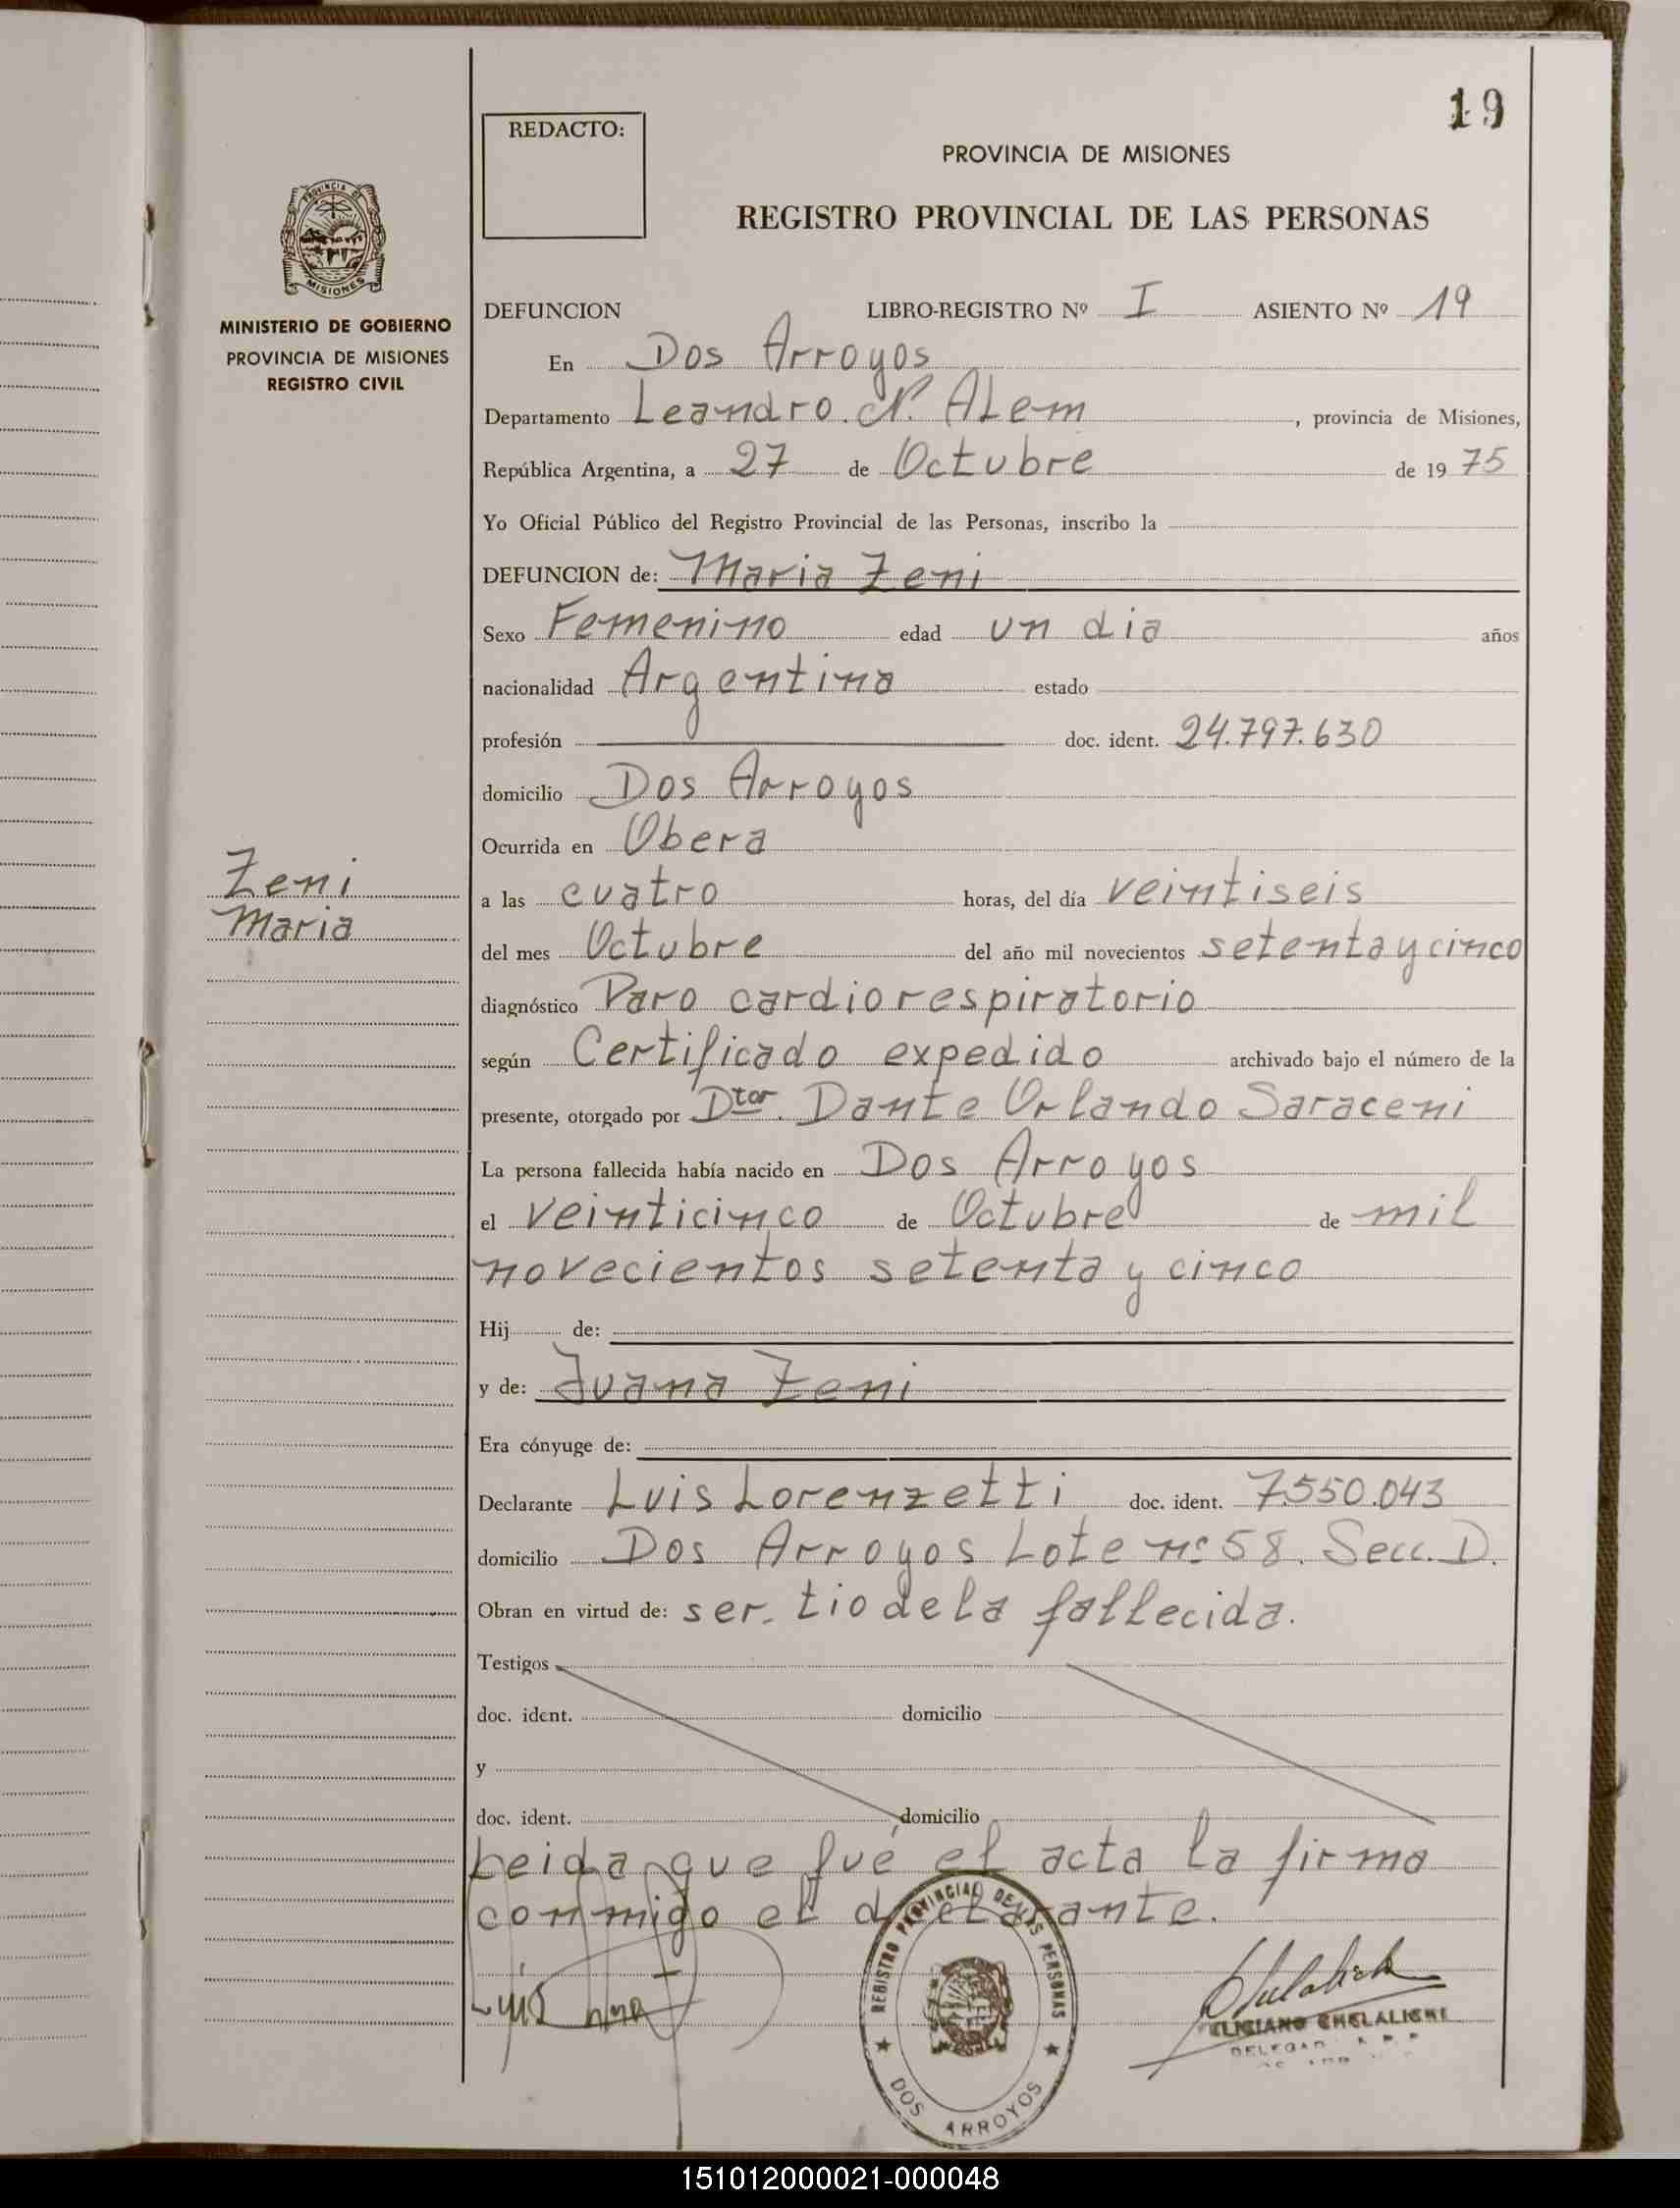 19
REDACTO:
PROVINCIA DE MISIONES
REGISTRO PROVINCIAL DE LAS PERSONAS
PROVINCIA DE
MISIONES
MINISTERIO DE GOBIERNO
PROVINCIA DE MISIONES
REGISTRO CIVIL
DEFUNCION LIBRO-REGISTRO Nº I ASIENTO Nº 19
En Dos Arroyos
Departamento Leandro. N. ALem, provincia de Misiones,
República Argentina, a 27 de Octubre de 19 75
Yo Oficial Público del Registro Provincial de las Personas, inscribo la
DEFUNCION de: Maria Zeni
Sexo Femenino edad un dia años
nacionalidad Argentina estado
profesión doc. ident. 24.797.630
domicilio Dos Arroyos
Ocurrida en Obera
Zeni
Maria
a las cuatro horas, del día veintiseis
del mes Octubre del año mil novecientos setenta y cinco
diagnóstico Paro cardiorespiratorio
según Certificado expedido archivado bajo el número de la
presente, otorgado por Dtor. Dante Orlando Saraceni
La persona fallecida había nacido en Dos Arroyos
el veinticinco de Octubre de mil
novecientos setenta y cinco
Hij de:
y de: Juana Zeni
Era cónyuge de:
Declarante Luis Lorenzetti doc. ident. 7.550.043
domicilio Dos Arroyos Lote nº 58. Secc. D.
Obran en virtud de: ser. tio de la fallecida.
Testigos
doc. ident. domicilio
y
doc. ident. domicilio
Leida que fué el acta la firma
conmigo el declarante.
Luis
REGISTRO PROVINCIAL DE LAS PERSONAS
DOS ARROYOS
CHELALICHE
151012000021-000048